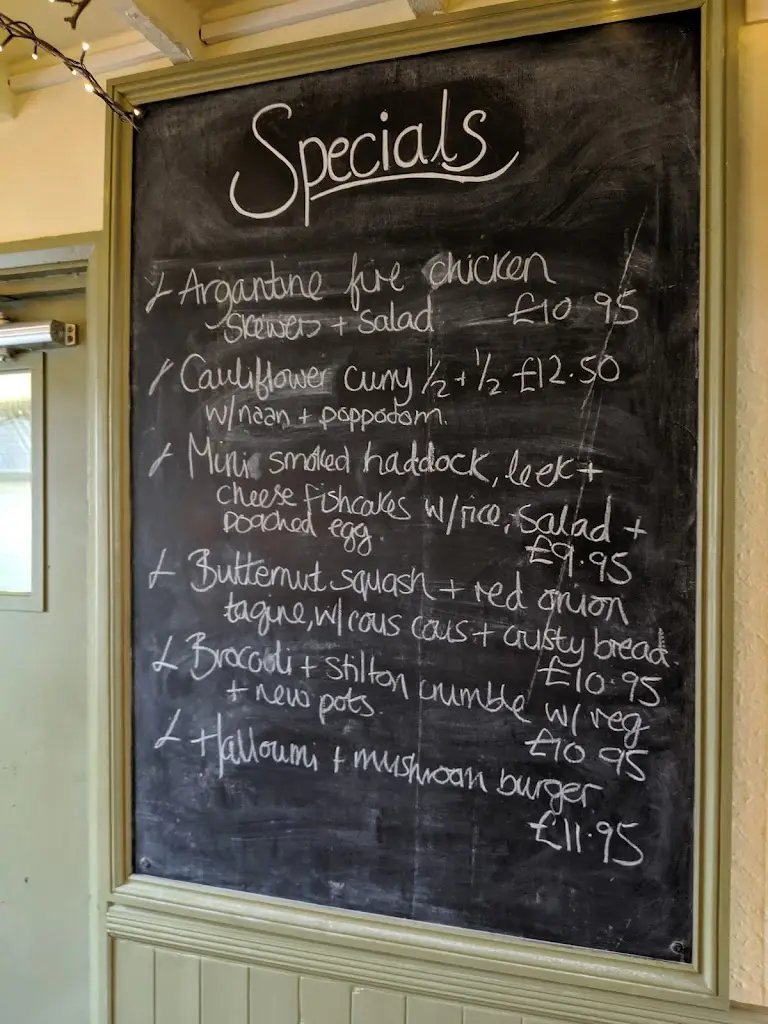 Specials
Argantine fire chicken
Skewers + Salad £10.95
Cauliflower curry 1/2 + 1/2 £12.50
w/naan + poppodom.
Mini smoked haddock, leek +
cheese fishcakes w/rice, salad +
poached egg.
£9.95
Butternut squash + red onion
tagine, w/ cous cous + crusty bread.
£10.95
Brocooli + stilton crumble w/ veg
+ new pots.
£10.95
Halloumi + mushroom burger
£11.95